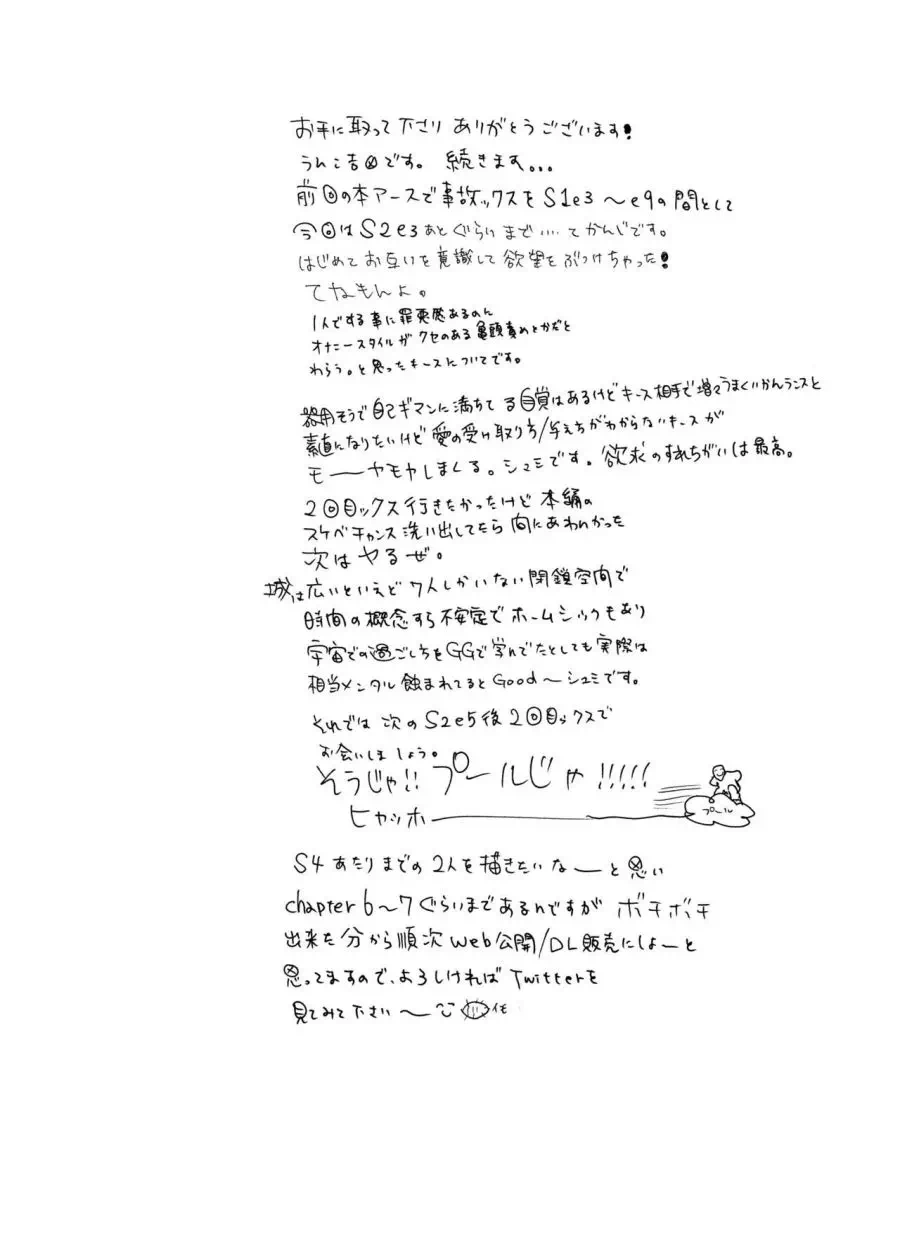 お手に取って下さり ありがとうございます!
うんこ吉です。 続きます...
前回の本アースで事故ックスをS1e3〜e9の間として
今回はS2e3あとぐらいまで…てかんじです。
はじめてお互いを意識して欲望をぶつけちゃった!
てねもんよ。
1人でする事に罪悪感あるのん
オナニースタイルがクセのある亀頭責めとかだと
わらう。と思ったキースについてです。
器用そうで自己ギマンに満ちてる自覚はあるけどキース相手で増々うまくいかんランスと
素直になりたいけど愛の受け取り方/与え方がわからないキースが
モーーヤモヤしまくる。シュミです。欲求のすれちがいは最高。
2回目ックス行きたかったけど本編の
スケベチャンス洗い出してたら間にあわんかった
次はヤるぜ。
城は広いといえど7人しかいない閉鎖空間で
時間の概念すら不安定でホームシックもあり
宇宙での過ごし方をGGで学んでたとしても実際は
相当メンタル蝕まれてるとGood〜シュミです。
それでは次のS2e5後2回目ックスで
お会いしましょう。
そうじゃ!!プールじゃ!!!!!
ヒャッホー
プール
S4あたりまでの2人を描きたいなーと思い
chapter6〜7ぐらいまであるんですがボチボチ
出来た分から順次web公開/DL販売にしよーと
思ってますので、よろしければTwitterを
見てみて下さい〜